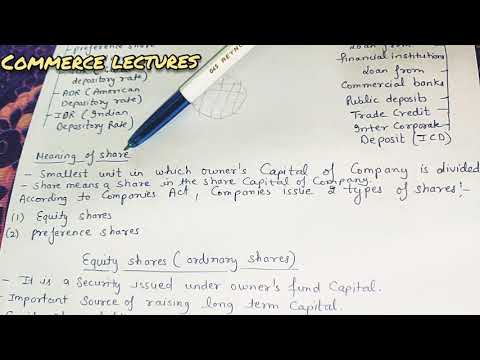 COMMERCE LECTURES
- preference share
depository rate)
- ADR (American
Depository rate)
- IDR (Indian
Depository Rate)
Loan from
financial institution
Loan from
Commercial banks
Public deposits
Trade Credit
Inter Corporate
Deposit (ICD)
Meaning of share
- Smallest unit in which owner's Capital of Company is divided
- Share means a Share in the share Capital of Company.
According to Companies Act, Companies issue 2 types of shares!-
(1) Equity shares
(2) Preference shares
Equity shares (ordinary shares)
- It is a Security issued under owner's fund Capital.
- Important Source of raising long term Capital.